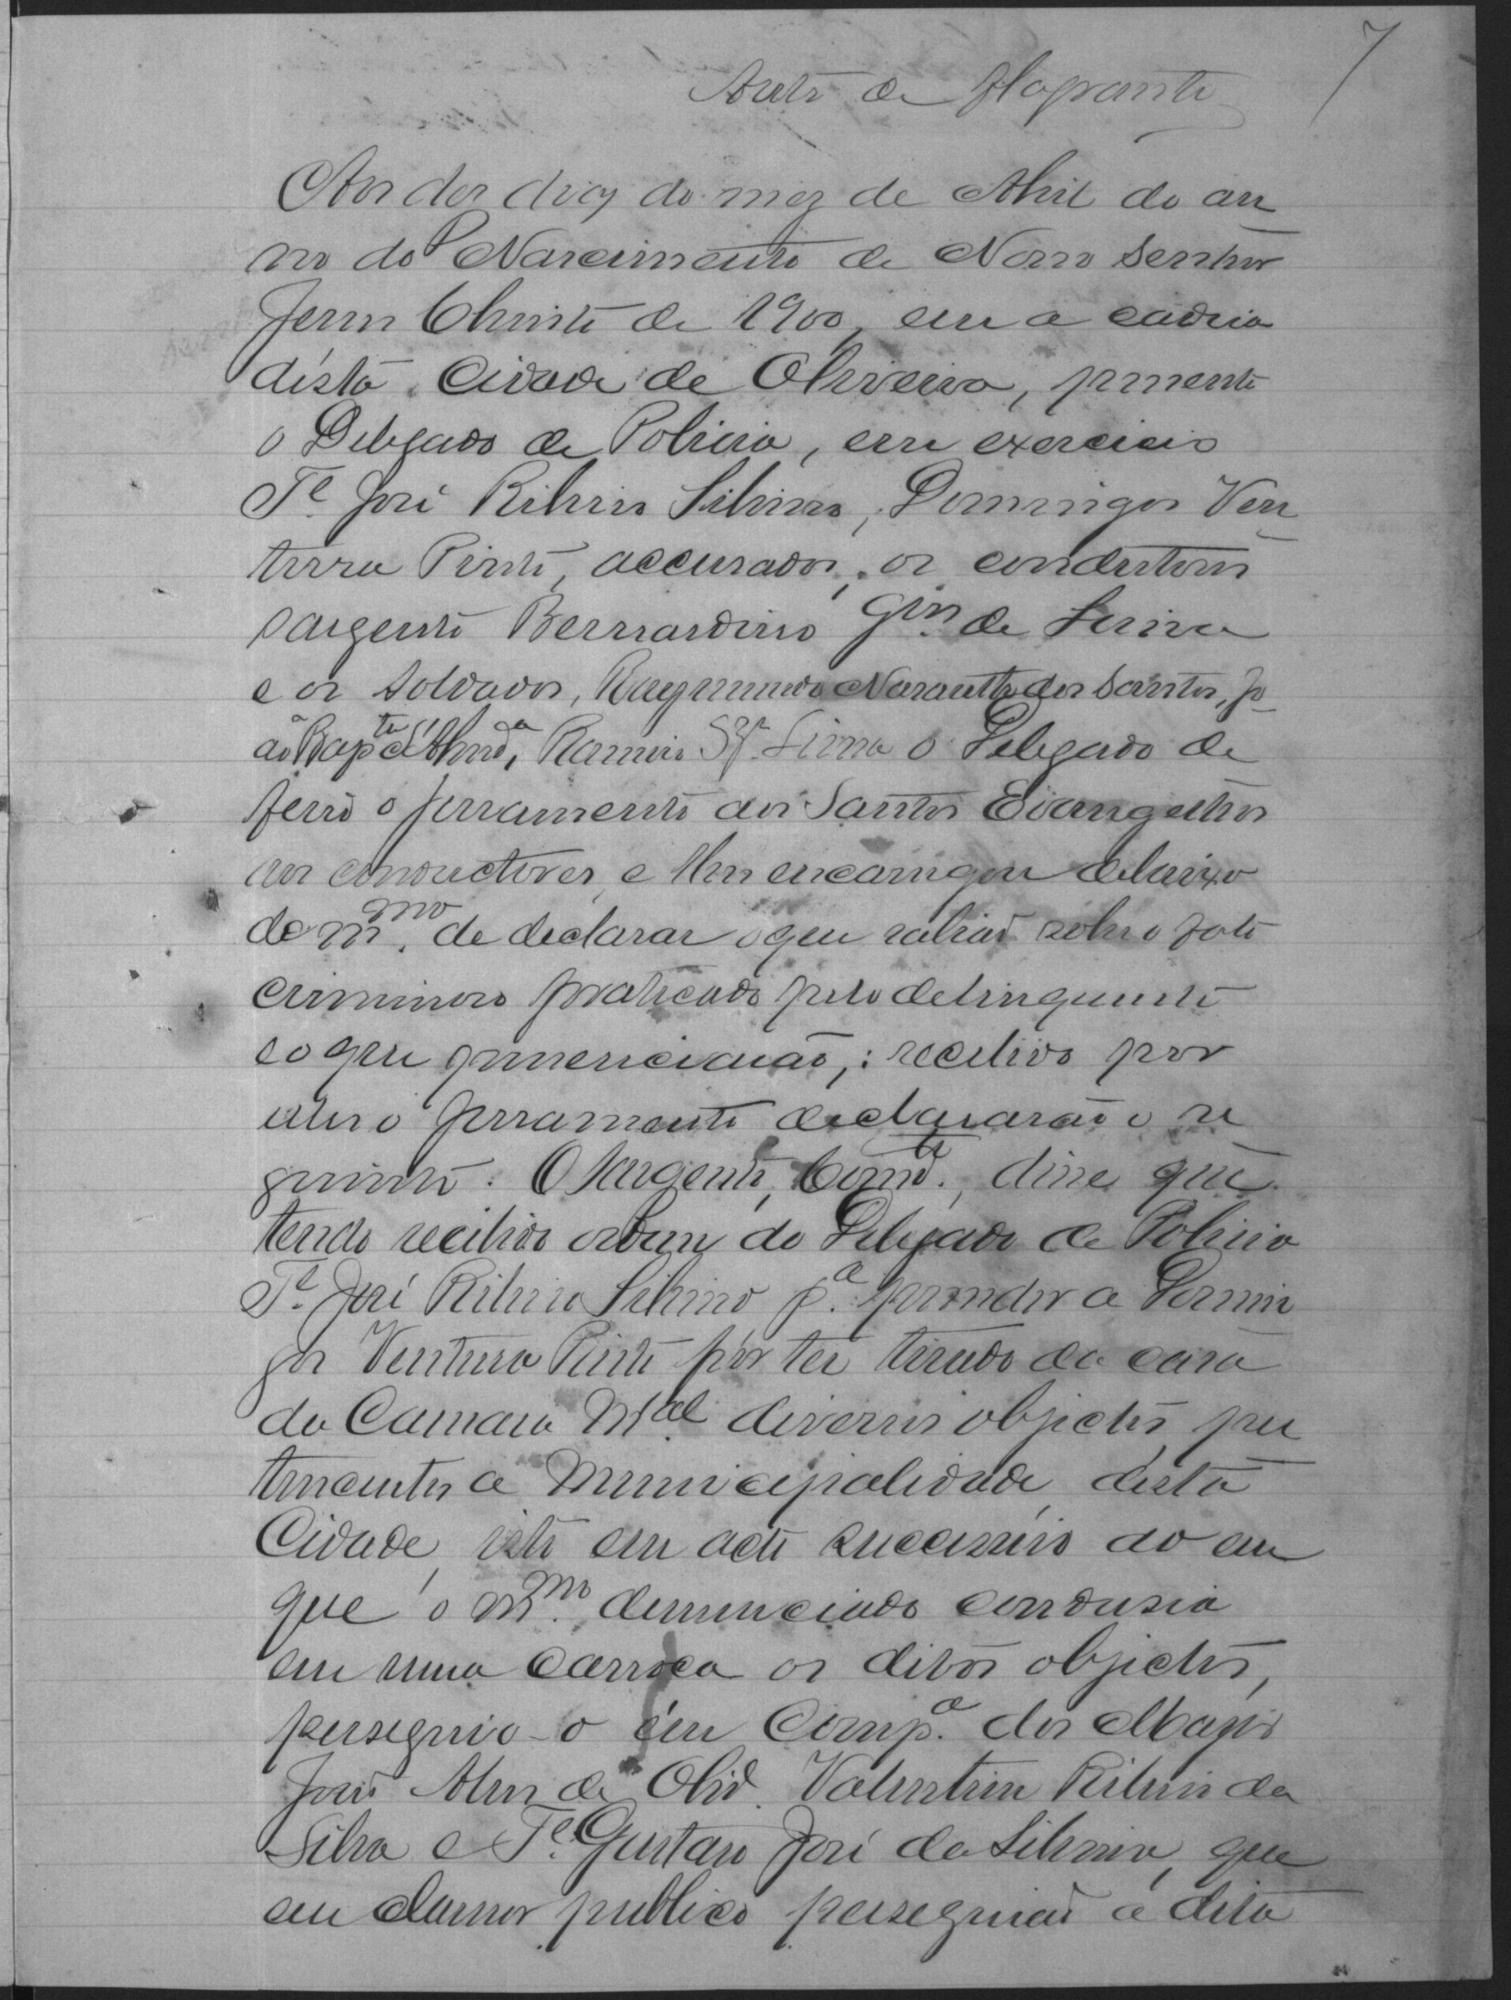 7
Auto de flagrante
Aos dez dias do mez de Abril do an
no do Nascimento de Nosso Senhor
Jesus Christo de 1900, em a cadeia
désta Cidade de Oliveira, presente
o Delegado de Policia, em exercicio
Te. José Ribeiro Silvino, Domingos Ven
tura Pinto, accusados, os conductores
sargento Bernardino Gon. de
e os soldados, Raymundo Nazareth dos Santos, Jo
ão Bapta. d'Almda., Ramiro Lima o Delegado de
ferio o juramento dos Santos Evangelhos
aos conductores, e lhes encarregou debaixo
do mmo. de declarar o que sabião sobre o fato
criminoso praticado pelo delinquente
e o que presenciarão,: recebido por
elles o juramento declararão o se
guinte: O Sargento, Comde., disse que
tendo recebido ordem do Delegado de Policia
Te. José Ribeiro Silvino pa. prender a Domin
gos Ventura Pinto por ter tirado da casa
da Camara Mal. diversos objectos per
tencentes a Municipalidade desta
Cidade, isto em acto successivo ao em
que o mmo. denunciado condusia
em uma carroça os ditos objectos,
perseguio-o em Compa. dos Majis
José Alves de Olivª. Valentim Ribeiro da
Silva e Te. Gustavo José da Silveira, que
em clamor publico perseguião a dita